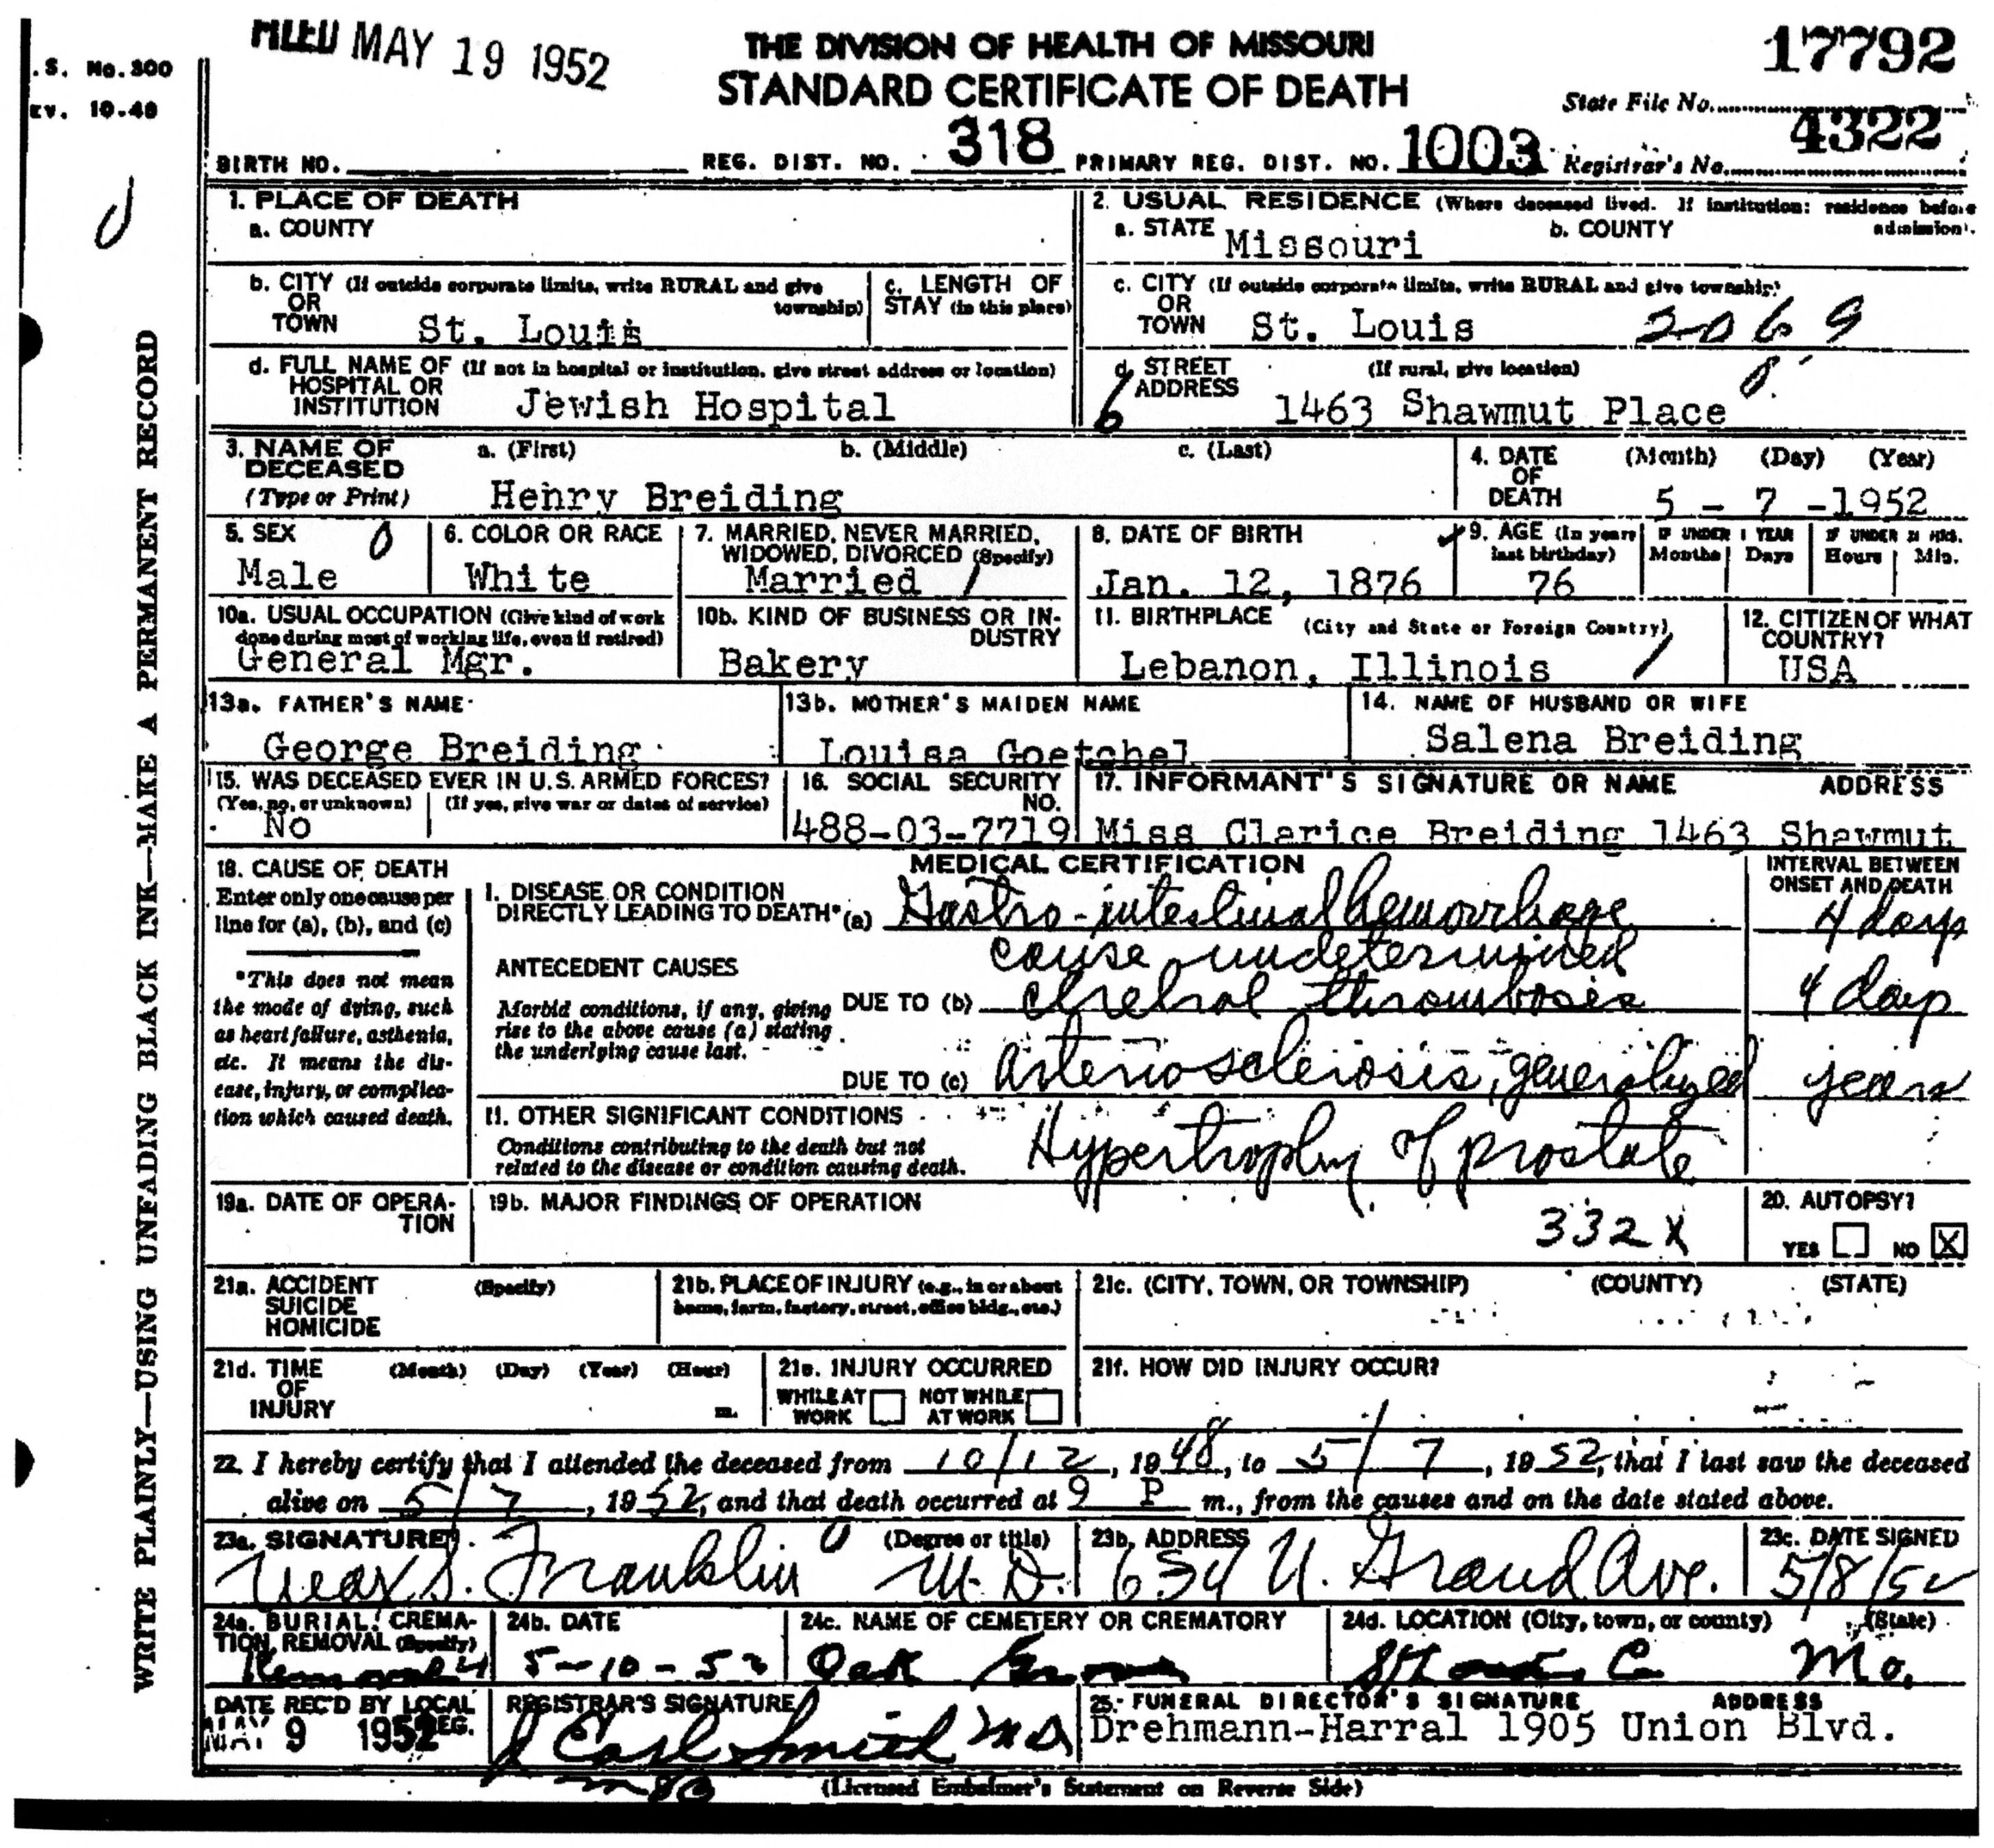 FILED MAY 19 1952
THE DIVISION OF HEALTH OF MISSOURI
17792
.S. No. 300
STANDARD CERTIFICATE OF DEATH
State File No.
EV. 10-48
4322
BIRTH NO. REG. DIST. NO. 318 PRIMARY REG. DIST. NO. 1003 Registrar's No.
WRITE PLAINLY—USING UNFADING BLACK INK—MAKE A PERMANENT RECORD
1. PLACE OF DEATH
a. COUNTY
2. USUAL RESIDENCE (Where deceased lived. If institution: residence before admission).
a. STATE Missouri b. COUNTY
b. CITY (If outside corporate limits, write RURAL and give township)
OR
TOWN St. Louis
c. LENGTH OF
STAY (in this place)
c. CITY (If outside corporate limits, write RURAL and give township)
OR
TOWN St. Louis 2069
d. FULL NAME OF (If not in hospital or institution, give street address or location)
HOSPITAL OR
INSTITUTION Jewish Hospital
d. STREET (If rural, give location)
ADDRESS
6 1463 Shawmut Place
3. NAME OF DECEASED a. (First) b. (Middle) c. (Last)
(Type or Print) Henry Breiding
4. DATE OF DEATH (Month) (Day) (Year)
5 - 7 -1952
5. SEX 0
Male
6. COLOR OR RACE
White
7. MARRIED, NEVER MARRIED,
WIDOWED, DIVORCED (Specify)
Married
8. DATE OF BIRTH
Jan. 12, 1876
9. AGE (In years last birthday)
76
IF UNDER 1 YEAR
Months Days
IF UNDER 24 HRS.
Hours Min.
10a. USUAL OCCUPATION (Give kind of work
done during most of working life, even if retired)
General Mgr.
10b. KIND OF BUSINESS OR INDUSTRY
Bakery
11. BIRTHPLACE (City and State or Foreign Country)
Lebanon, Illinois
12. CITIZEN OF WHAT COUNTRY?
USA
13a. FATHER'S NAME
George Breiding
13b. MOTHER'S MAIDEN NAME
Louisa Goetchel
14. NAME OF HUSBAND OR WIFE
Salena Breiding
15. WAS DECEASED EVER IN U.S. ARMED FORCES?
(Yes, no, or unknown) (If yes, give war or dates of service)
No
16. SOCIAL SECURITY NO.
488-03-7719
17. INFORMANT'S SIGNATURE OR NAME ADDRESS
Miss Clarice Breiding 1463 Shawmut
18. CAUSE OF DEATH
Enter only one cause per
line for (a), (b), and (c)
*This does not mean
the mode of dying, such
as heart failure, asthenia,
etc. It means the dis-
ease, injury, or complica-
tion which caused death.
MEDICAL CERTIFICATION
INTERVAL BETWEEN
ONSET AND DEATH
I. DISEASE OR CONDITION
DIRECTLY LEADING TO DEATH* (a) Gastro-intestinal hemorrhage 4 days
cause undetermined
ANTECEDENT CAUSES
Morbid conditions, if any, giving
rise to the above cause (a) stating
the underlying cause last.
DUE TO (b) cerebral thrombosis 4 days
DUE TO (c) arteriosclerosis, generalized years
II. OTHER SIGNIFICANT CONDITIONS
Conditions contributing to the death but not
related to the disease or condition causing death.
Hypertrophy of prostate
19a. DATE OF OPERA-
TION
19b. MAJOR FINDINGS OF OPERATION
332X
20. AUTOPSY?
YES NO X
21a. ACCIDENT (Specify)
SUICIDE
HOMICIDE
21b. PLACE OF INJURY (e.g., in or about
home, farm, factory, street, office bldg., etc.)
21c. (CITY, TOWN, OR TOWNSHIP) (COUNTY) (STATE)
21d. TIME (Month) (Day) (Year) (Hour)
OF
INJURY m.
21e. INJURY OCCURRED
WHILE AT WORK NOT WHILE AT WORK
21f. HOW DID INJURY OCCUR?
22. I hereby certify that I attended the deceased from 10/12, 1948, to 5/7, 1952, that I last saw the deceased
alive on 5/7, 1952, and that death occurred at 9 P m., from the causes and on the date stated above.
23a. SIGNATURE (Degree or title)
Max S. Franklin M.D.
23b. ADDRESS
634 N. Grand Ave.
23c. DATE SIGNED
5/8/52
24a. BURIAL, CREMA-
TION, REMOVAL (Specify)
Removal
24b. DATE
5-10-52
24c. NAME OF CEMETERY OR CREMATORY
Oak Grove
24d. LOCATION (City, town, or county) (State)
St Louis Co Mo.
DATE REC'D BY LOCAL REG.
MAY 9 1952
REGISTRAR'S SIGNATURE
J Carl Smith MD
25. FUNERAL DIRECTOR'S SIGNATURE ADDRESS
Drehmann-Harral 1905 Union Blvd.
(Licensed Embalmer's Statement on Reverse Side)